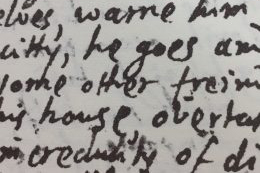 elves, warne him
citty, he goes am
some other frein
his house, overta
incredulity of di